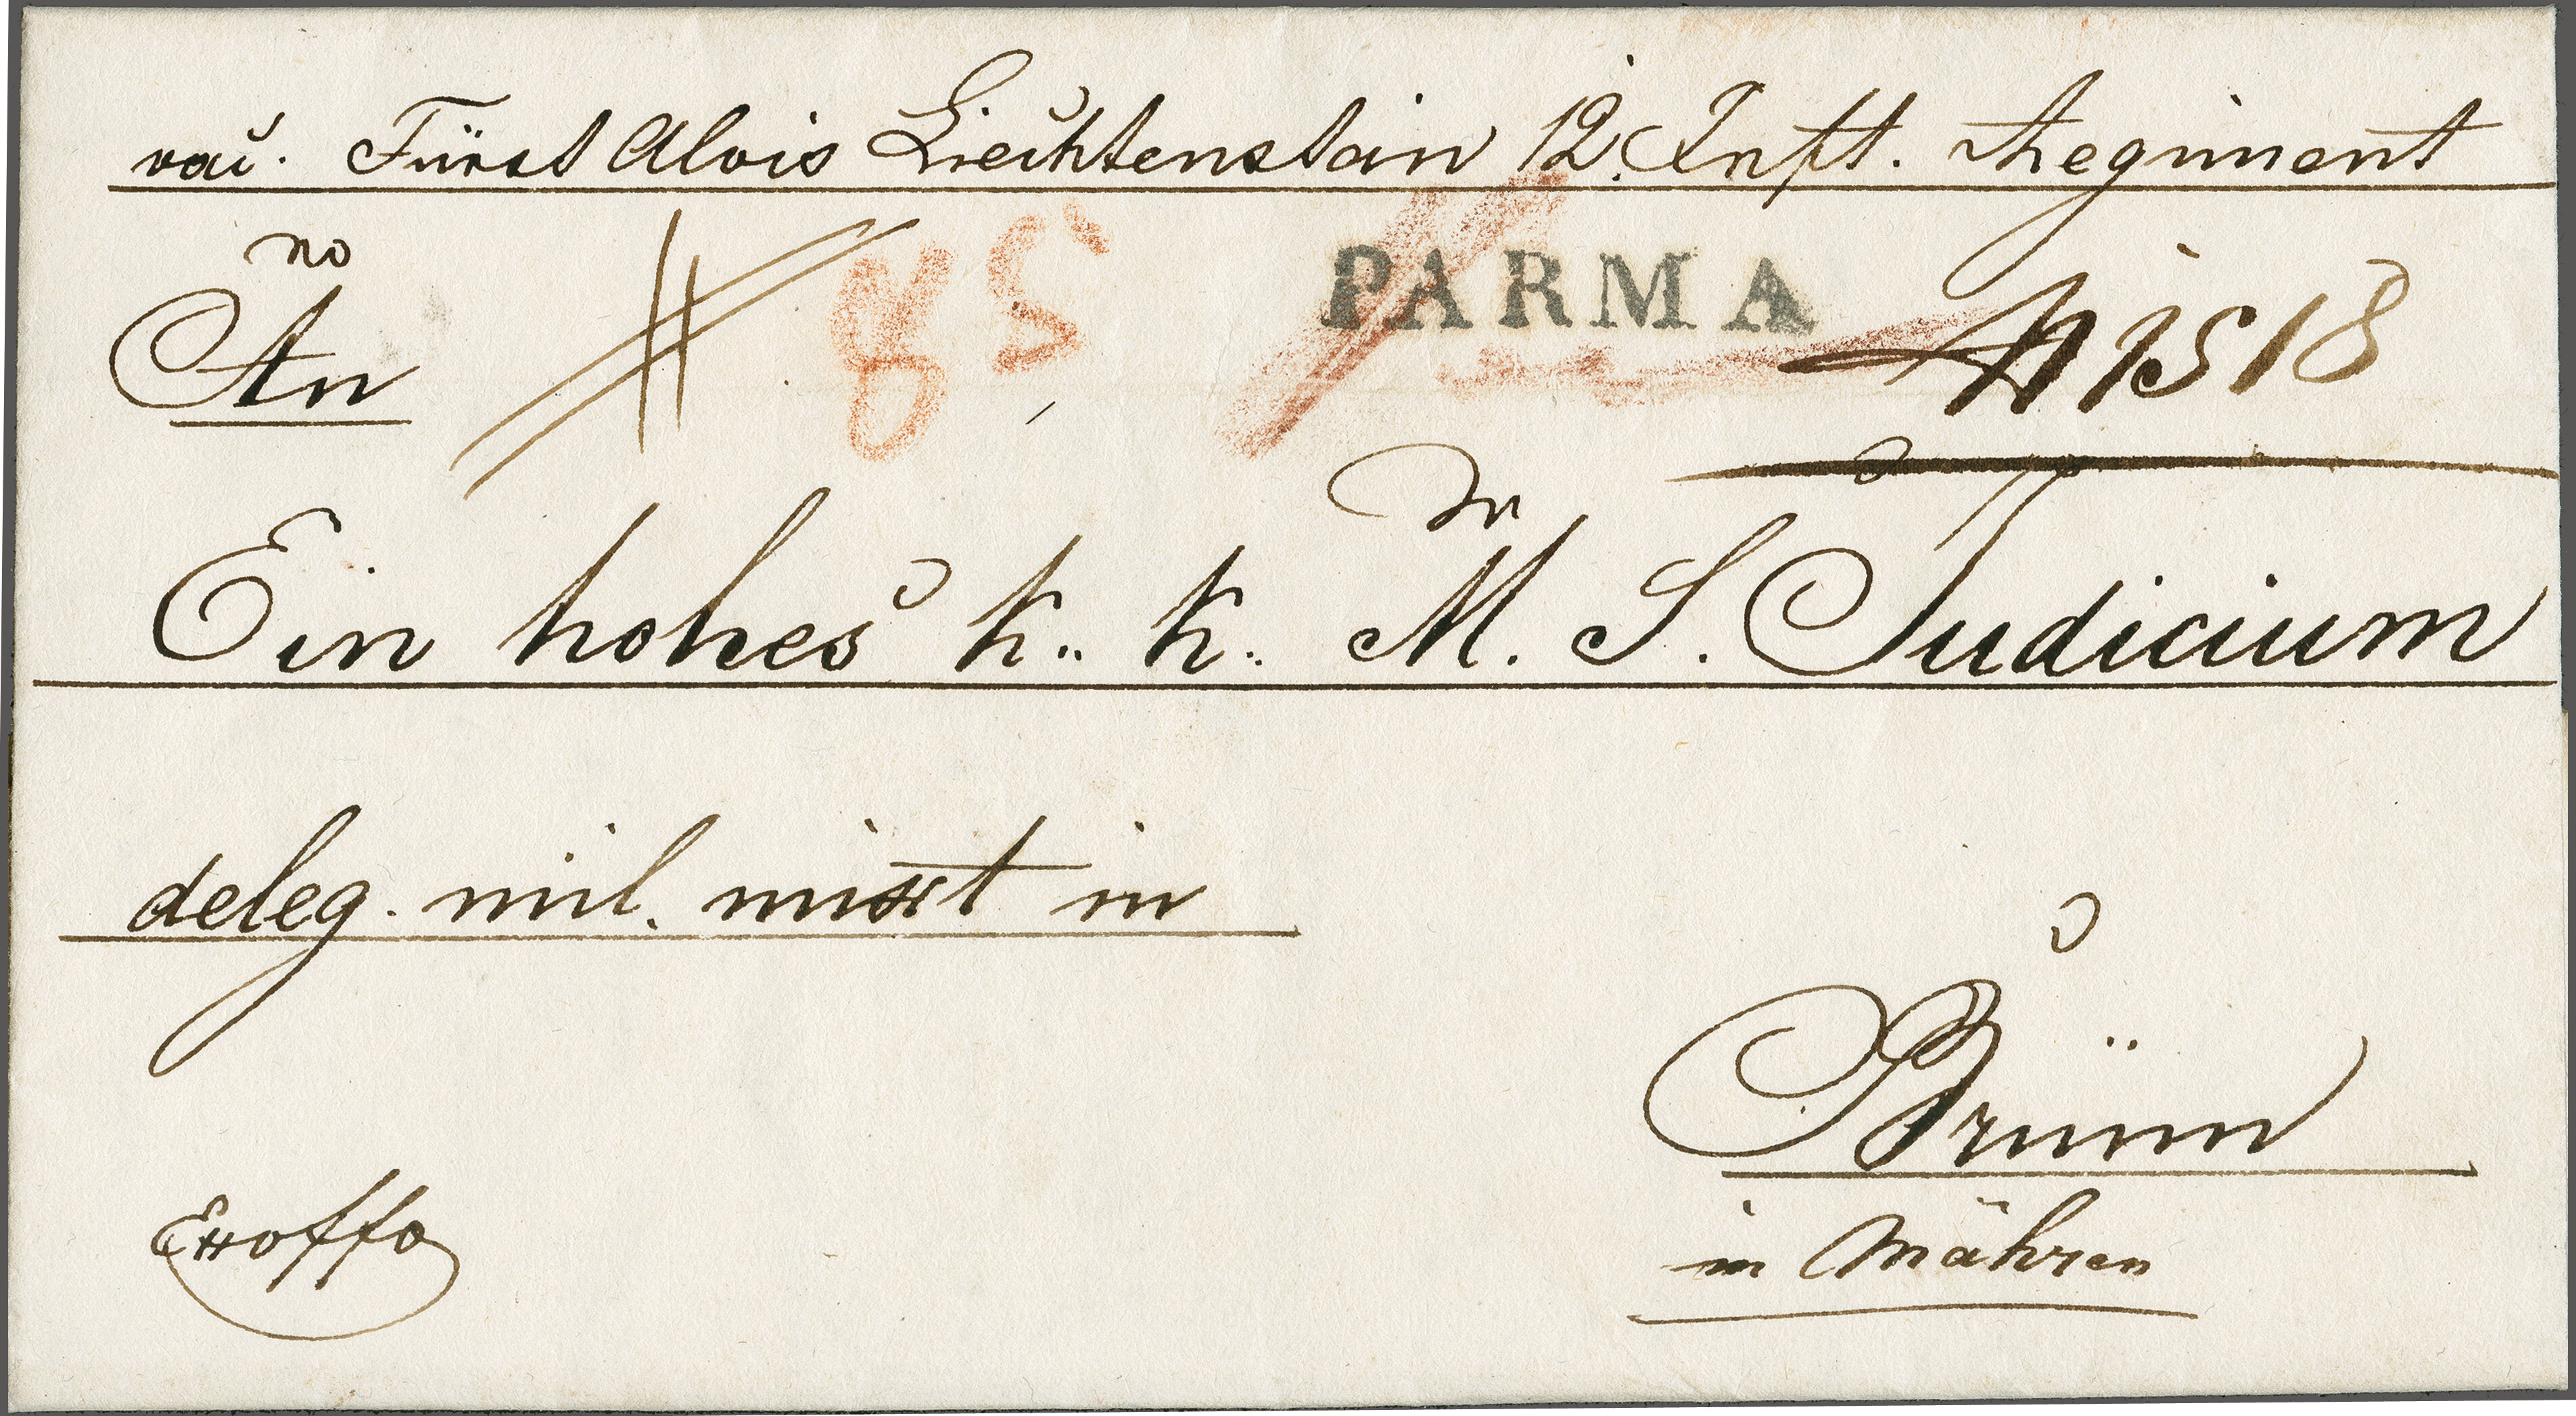 vac. Fürst Alois Liechtenstein 12. Inft. Regiment
no
An
85
PARMA
1518
Ein hohes k. k. M. S. Judicium
deleg. mil. mixt in
Brünn
in Mähren
Exoffo